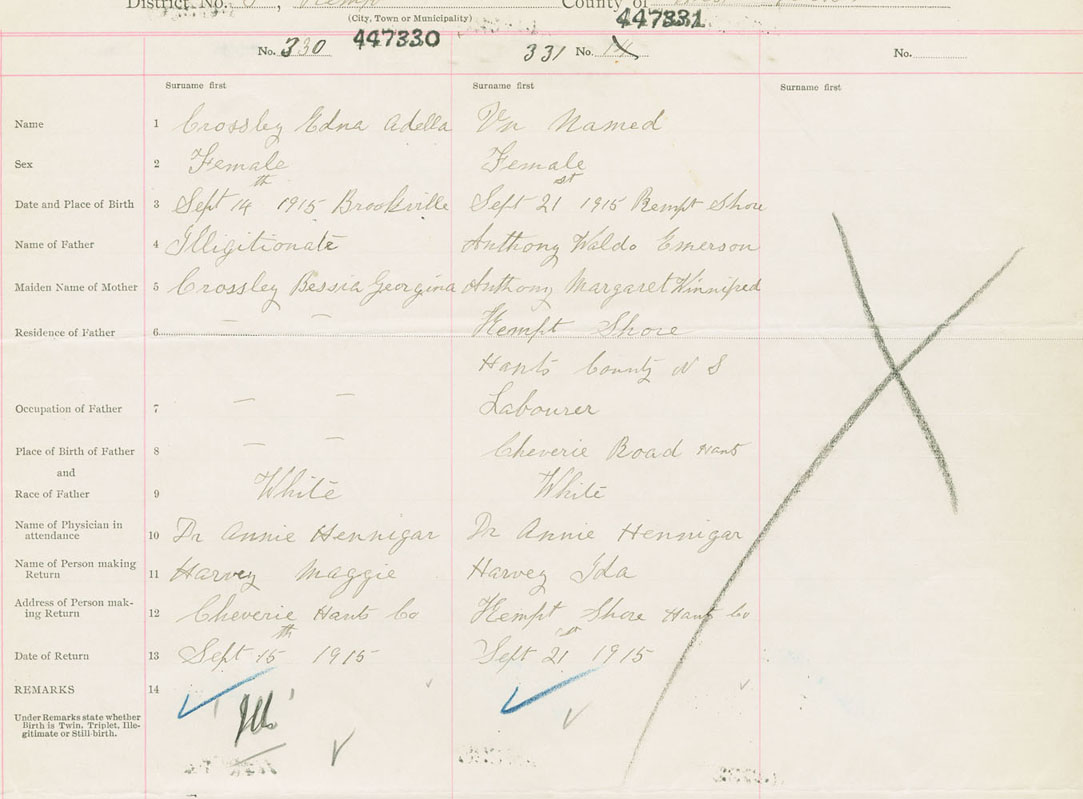 District No. , Kempt County of
(City, Town or Municipality)
447330 447331
No. 330 331 No. 14 No.
Surname first Surname first Surname first
Name 1 Crossley Edna Adella Un Named
Sex 2 Female Female
Date and Place of Birth 3 Sept 14th 1915 Brookville Sept 21st 1915 Kempt Shore
Name of Father 4 Illigitionate Anthony Waldo Emerson
Maiden Name of Mother 5 Crossley Bessia Georgina Anthony Margaret Winnifred
Residence of Father 6 — — Kempt Shore
Hants County N S
Occupation of Father 7 — — Labourer
Place of Birth of Father 8 — — Cheverie Road Hants
and
Race of Father 9 White White
Name of Physician in attendance 10 Dr Annie Hennigar Dr Annie Hennigar
Name of Person making Return 11 Harvey Maggie Harvey Ida
Address of Person making Return 12 Cheverie Hants Co Kempt Shore Hants Co
Date of Return 13 Sept 15th 1915 Sept 21st 1915
REMARKS 14
Under Remarks state whether Birth is Twin, Triplet, Illegitimate or Still-birth.
Ills'